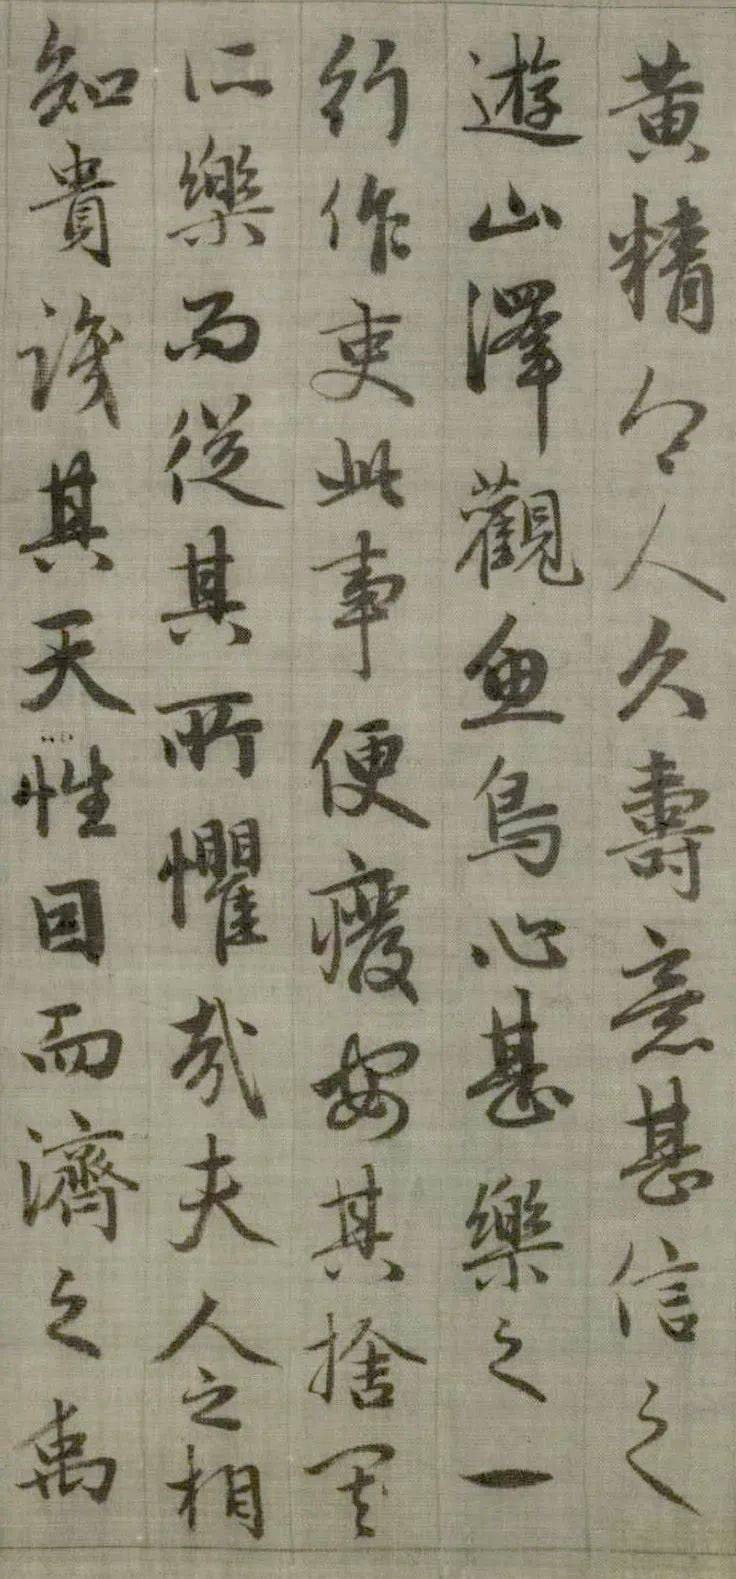 黃精令人久壽意甚信之
遊山澤觀魚鳥心甚樂之一
行作吏此事便廢安其捨其
所樂而從其所懼哉夫人之相
知貴識其天性因而濟之禹